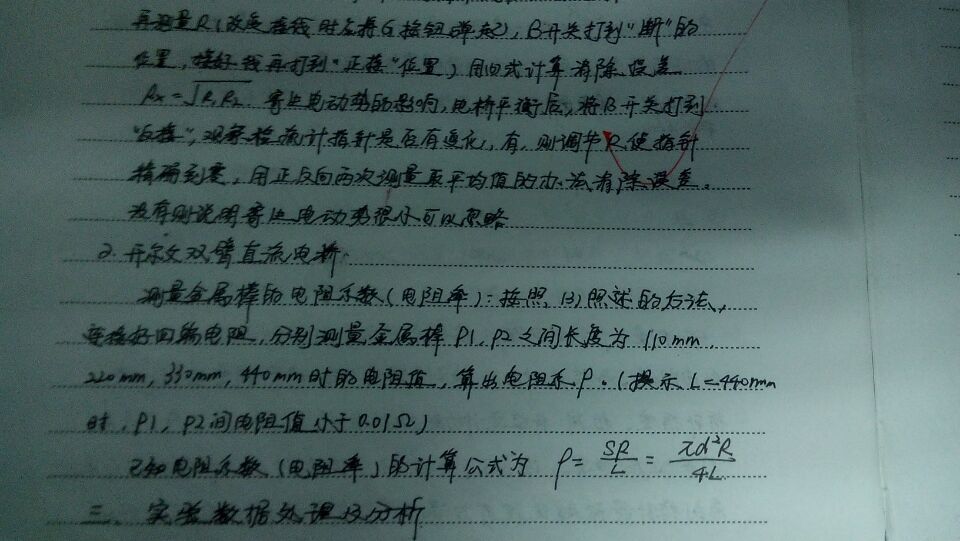 再测量R(改变接线时应将G按钮弹起),B开关打到“断”的
位置,接好线再打到“正接”位置)用公式计算消除误差
Rx=√R₁R₂ 寄生电动势的影响,电桥平衡后,将B开关打到
“反接”,观察检流计指针是否有变化,有,则调节R使指针
精确到零,用正反向两次测量取平均值的办法消除误差。
没有则说明寄生电动势很小可以忽略
2.开尔文双臂直流电桥.
测量金属棒的电阻系数(电阻率):按照(3)照述的方法,
连接好四端电阻,分别测量金属棒P1,P2之间长度为110mm,
220mm,330mm,440mm时的电阻值,算出电阻系ρ。(提示L=440mm
时,P1,P2间电阻值小于0.01Ω)
已知电阻系数(电阻率)的计算公式为 ρ=SR/L=πd²R/4L
三、实验数据处理及分析